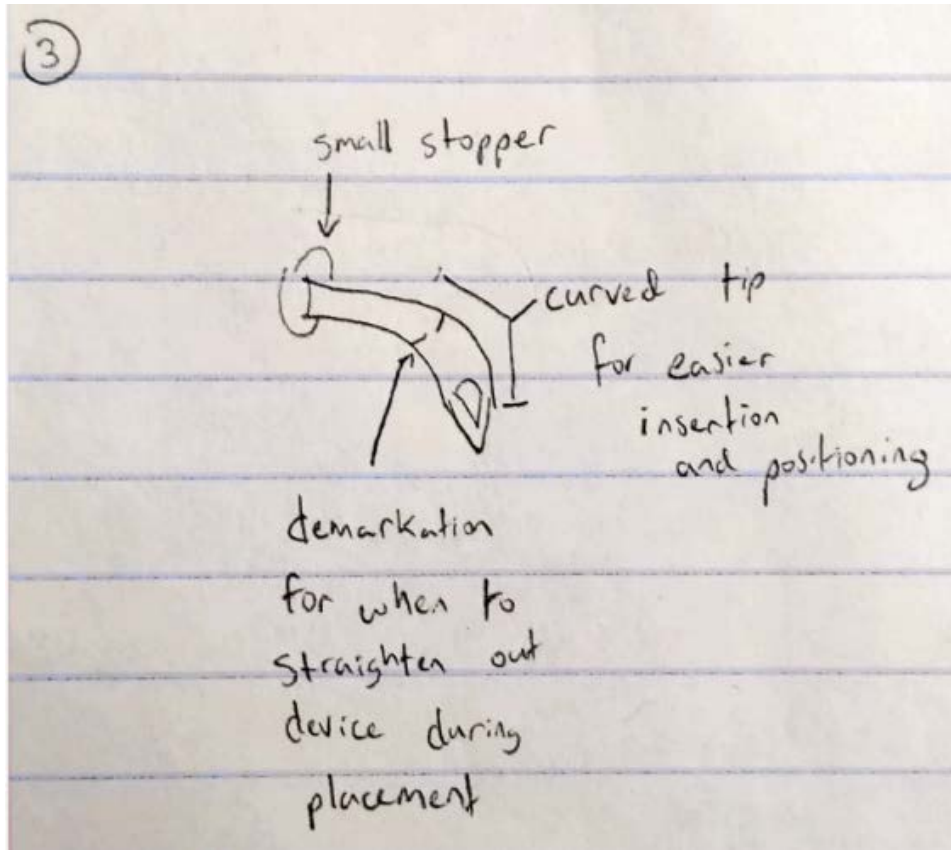 3
small stopper
curved tip
for easier
insertion
and positioning
demarkation
for when to
straighten out
device during
placement